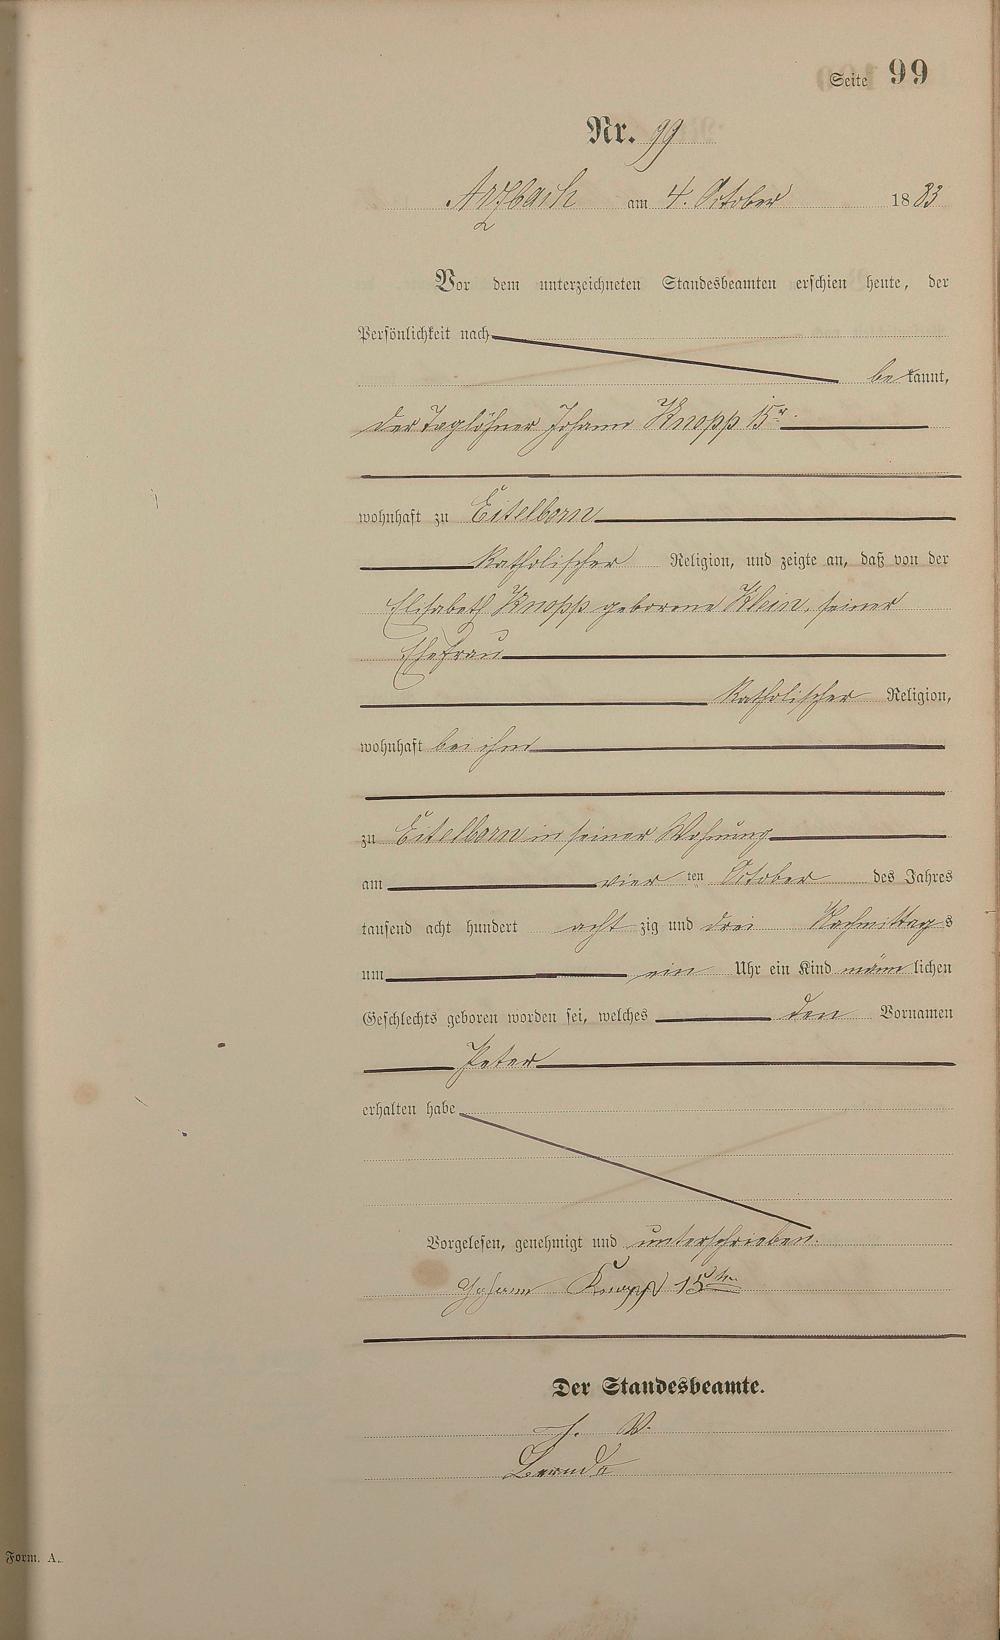 Seite 99
Nr. 99
Arzbach am 4. October 1883
Vor dem unterzeichneten Standesbeamten erschien heute, der
Persönlichkeit nach
be kannt,
der Taglöhner Johann Knopp 15r.
wohnhaft zu Eitelborn
katholischer Religion, und zeigte an, daß von der
Elisabeth Knopp geborene Klein, seiner
Ehefrau
katholischer Religion,
wohnhaft bei ihm
zu Eitelborn in seiner Wohnung
am vier ten October des Jahres
tausend acht hundert acht zig und drei Nachmittag s
um ein Uhr ein Kind männ lichen
Geschlechts geboren worden sei, welches den Vornamen
Peter
erhalten habe
Vorgelesen, genehmigt und unterschrieben.
Johann Knopp 15
Der Standesbeamte.
J. V.
Form. A.